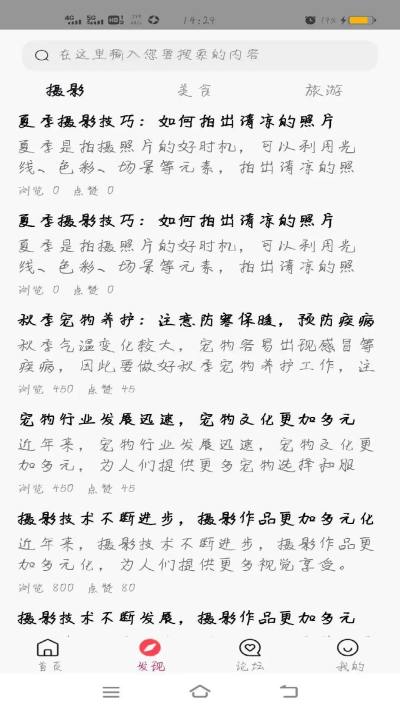 4G 5G HD 14:24 19%
在这里输入您要搜索的内容
摄影 美食 旅游
夏季摄影技巧：如何拍出清凉的照片
夏季是拍摄照片的好时机，可以利用光
线、色彩、场景等元素，拍出清凉的照
浏览 0 点赞 0
夏季摄影技巧：如何拍出清凉的照片
夏季是拍摄照片的好时机，可以利用光
线、色彩、场景等元素，拍出清凉的照
浏览 0 点赞 0
秋季宠物养护：注意防寒保暖，预防疾病
秋季气温变化较大，宠物容易出现感冒等
疾病，因此要做好秋季宠物养护工作，注
浏览 450 点赞 45
宠物行业发展迅速，宠物文化更加多元
近年来，宠物行业发展迅速，宠物文化更
加多元，为人们提供更多宠物选择和服
浏览 450 点赞 45
摄影技术不断进步，摄影作品更加多元化
近年来，摄影技术不断进步，摄影作品更
加多元化，为人们提供更多视觉享受。
浏览 800 点赞 80
摄影技术不断发展，摄影作品更加多元
首页 发现 论坛 我的